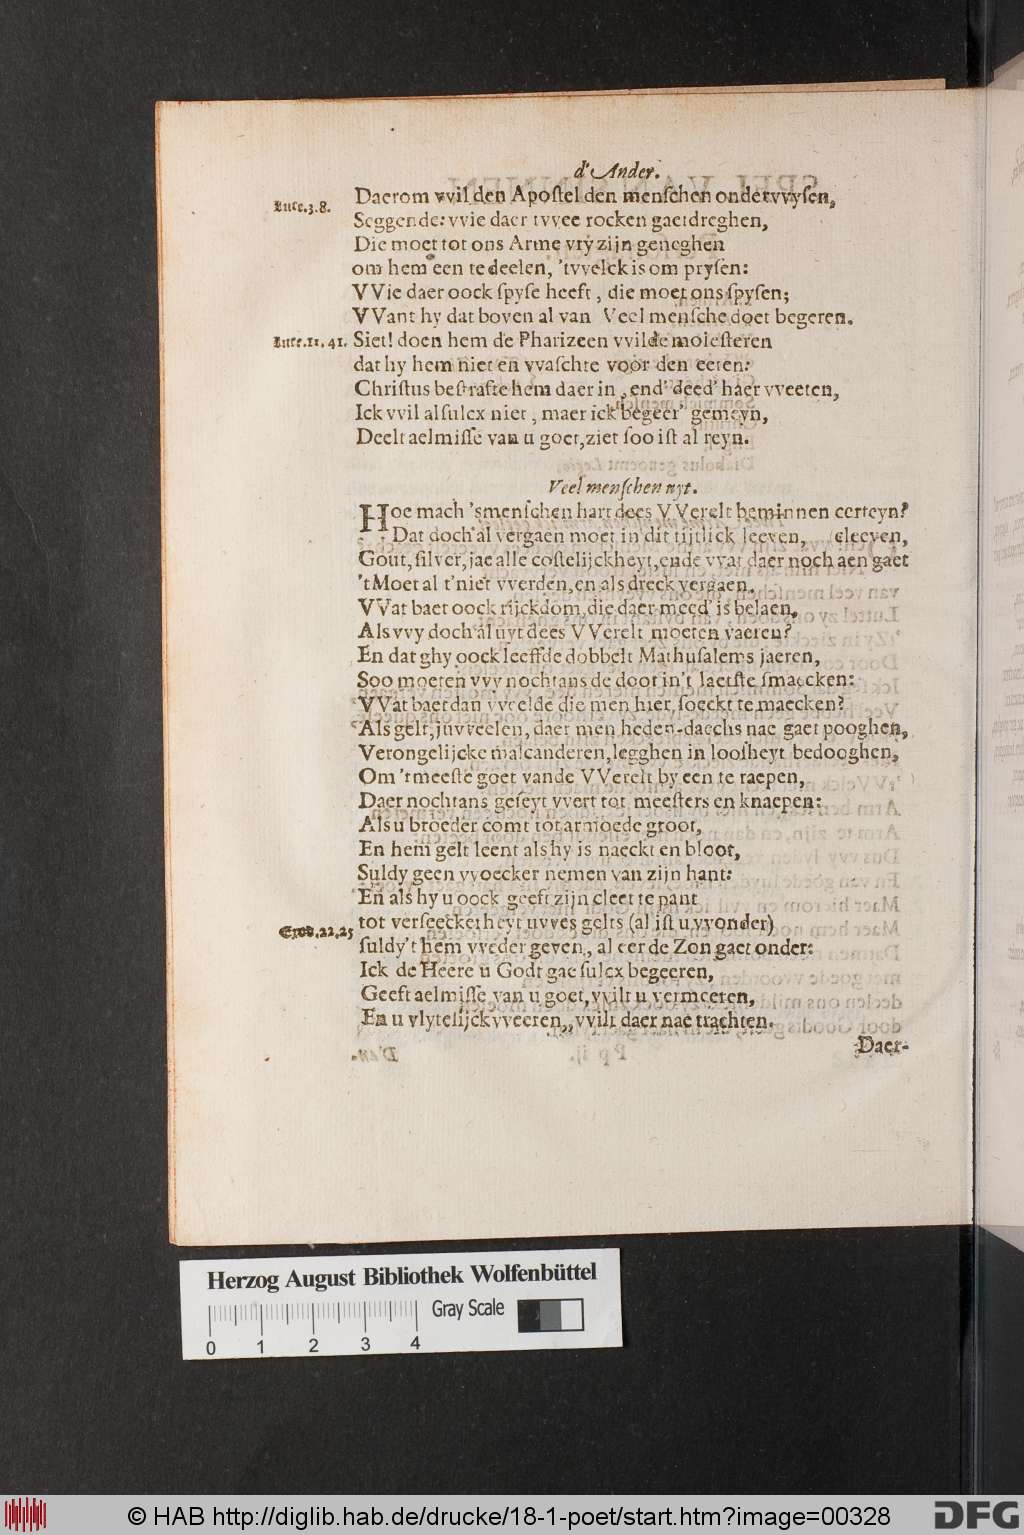 d'Ander.
Daerom vvil den Apostel den menschen ondervvysen,
Luce.3.8.
Seggende: vvie daer tvvee rocken gaet dreghen,
Die moet tot ons Arme vry zijn geneghen
om hem een te deelen, 'tvvelck is om prysen:
VVie daer oock spyse heeft, die moet ons spysen;
VVant hy dat boven al van Veel mensche doet begeren.
Luce.11.41.
Siet! doen hem de Pharizeen vvilde molesteren
dat hy hem niet en vvaschte voor den eeten:
Christus bestrafte hem daer in, end' deed' haer vveeten,
Ick vvil al sulcx niet, maer ick begeer' gemeyn,
Deelt aelmisse van u goet, ziet soo ist al reyn.
Veel menschen uyt.
Hoe mach 'smenschen hart dees VVerelt beminnen certeyn?
Dat doch al vergaen moet in dit tijtlick leeven, cleeven,
Gout, silver, jae alle costelijckheyt, ende vvat daer noch aen gaet
't Moet al t'niet vverden, en als dreck vergaen.
VVat baet oock rijckdom, die daer meed' is belaen,
Als vvy doch al uyt dees VVerelt moeten vaeren?
En dat ghy oock leeffde dobbelt Mathusalems jaeren,
Soo moeten vvy nochtans de doot in't laetste smaecken:
VVat baet dan vveelde die men hier soeckt te maecken?
Als gelt, juvveelen, daer men heden-daechs nae gaet pooghen,
Verongelijcke malcanderen, legghen in loosheyt bedooghen,
Om 't meeste goet vande VVerelt by een te raepen,
Daer nochtans geseyt vvert tot meesters en knaepen:
Als u broeder comt tot armoede groot,
En hem gelt leent als hy is naeckt en bloot,
Suldy geen vvoecker nemen van zijn hant:
En als hy u oock geeft zijn cleet te pant
tot verseeckertheyt uvves gelts (al ist u vvonder)
Exod.22.25
suldy't hem vveder geven, al eer de Zon gaet onder:
Ick de Heere u Godt gae sulcx begeeren,
Geeft aelmisse van u goet, vvilt u vermeeren,
En u vlytelijck vveeren, vvilt daer nae trachten.
Daer-
Herzog August Bibliothek Wolfenbüttel
Gray Scale
0 1 2 3 4
© HAB http://diglib.hab.de/drucke/18-1-poet/start.htm?image=00328
DFG